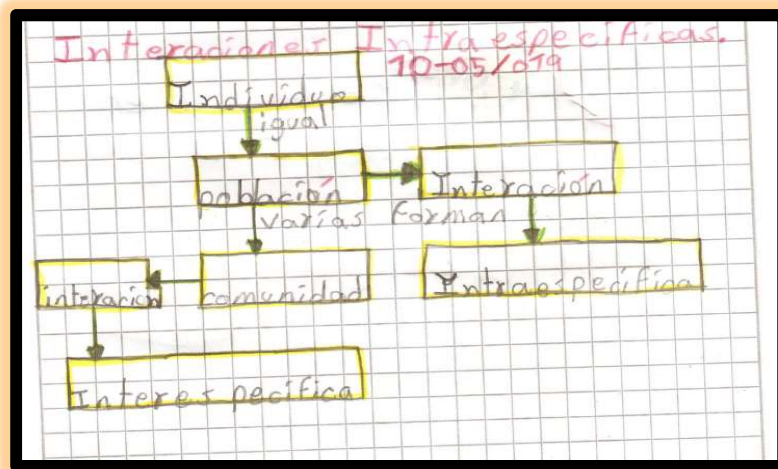 Interaciones Intraespecificas.
10-05/019
Individuo
igual
población Interación
varias forman
interacion comunidad Yntraespecifica
Interespecifica